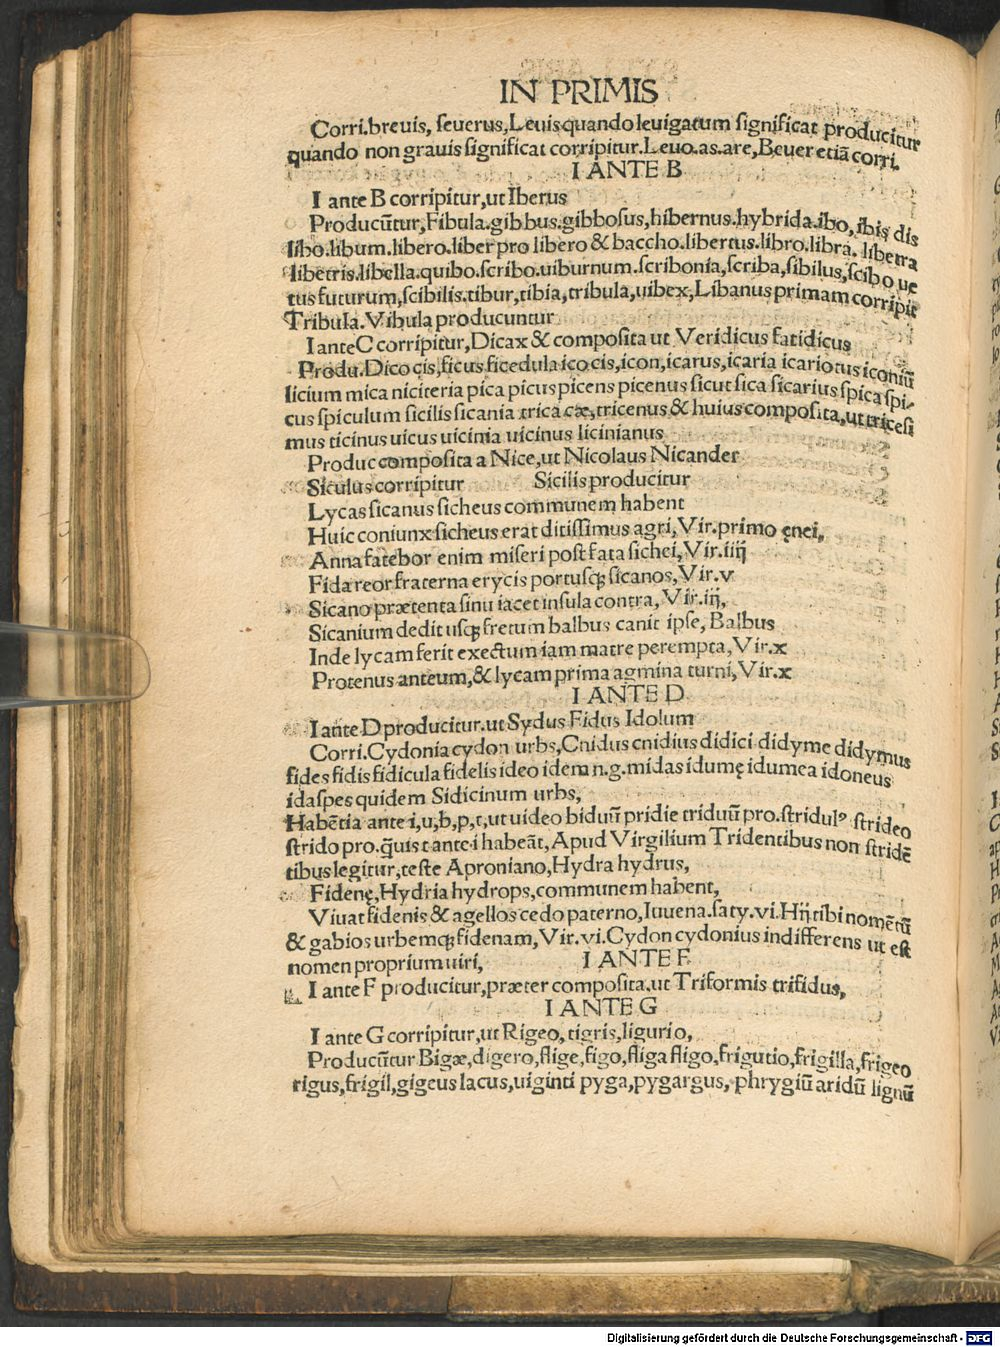 IN PRIMIS
Corri.breuis, seuerus,Leuis quando leuigatum significat producitur
quando non grauis significat corripitur.Leuo.as.are, Beuer etiã corri.
I ANTE B
I ante B corripitur,ut Iberus
Producũtur,Fibula.gibbus.gibbosus,hibernus.hybrida.ibo,ibis dis
libo.libum.libero.liber pro libero & baccho.libertus.libro.libra. libetra
libetris.libella.quibo.scribo.uiburnum.scribonia,scriba,sibilus,scibo ue
tus futurum,scibilis.tibur,tibia,tribula,uibex,Libanus primam corripit
Tribula.Vibula producuntur
I ante C corripitur,Dicax & composita ut Veridicus fatidicus
Produ.Dico cis,ficus ficedula ico cis,icon,icarus,icaria icariotus iconiũ
licium mica niciteria pica picus picens picenus sicut sica sicarius spica spi-
cus spiculum sicilis sicania trica cæ,tricenus & huius composita,ut tricesi
mus ticinus uicus uicinia uicinus licinianus
Produc composita a Nice,ut Nicolaus Nicander
Siculus corripitur Sicilis producitur
Lycas sicanus sicheus communem habent
Huic coniunx sicheus erat ditissimus agri,Vir.primo ęnei,
Anna fatebor enim miseri post fata sichei,Vir.iiij
Fida reor fraterna erycis portusqꝫ sicanos,Vir.v
Sicano prætenta sinu iacet insula contra,Vir.iij,
Sicanium dedit usqꝫ fretum balbus canit ipse, Balbus
Inde lycam ferit exectum iam matre perempta,Vir.x
Protenus anteum,& lycam prima agmina turni,Vir.x
I ANTE D
I ante D producitur.ut Sydus Fidus Idolum
Corri.Cydonia cydon urbs,Cnidus cnidius didici didyme didymus
fides fidis fidicula fidelis ideo idem n.g.midas idumę idumea idoneus
idaspes quidem Sidicinum urbs,
Habẽt ia ante i,u,b,p,t,ut uideo biduũ pridie triduũ pro.stridulꝰ strideo
strido pro.q̃uis t ante i habeãt,Apud Virgilium Tridentibus non stridẽ
tibus legitur,teste Aproniano,Hydra hydrus,
Fidenę,Hydria hydrops,communem habent,
Viuat fidenis & agellos cedo paterno,Iuuena.saty.vi.Hij tibi nomẽtũ
& gabios urbemqꝫ fidenam,Vir.vi.Cydon cydonius indifferens ut est
nomen proprium uiri, I ANTE F
I ante F producitur,præter composita.ut Triformis trifidus,
I ANTE G
I ante G corripitur,ut Rigeo,tigris,ligurio,
Producũtur Bigæ,digero,flige,figo,fliga fligo,frigutio,frigilla,frigeo
rigus,frigil,gigeus lacus,uiginti pyga,pygargus, phrygiũ aridũ lignũ
Digitalisierung gefördert durch die Deutsche Forschungsgemeinschaft - DFG